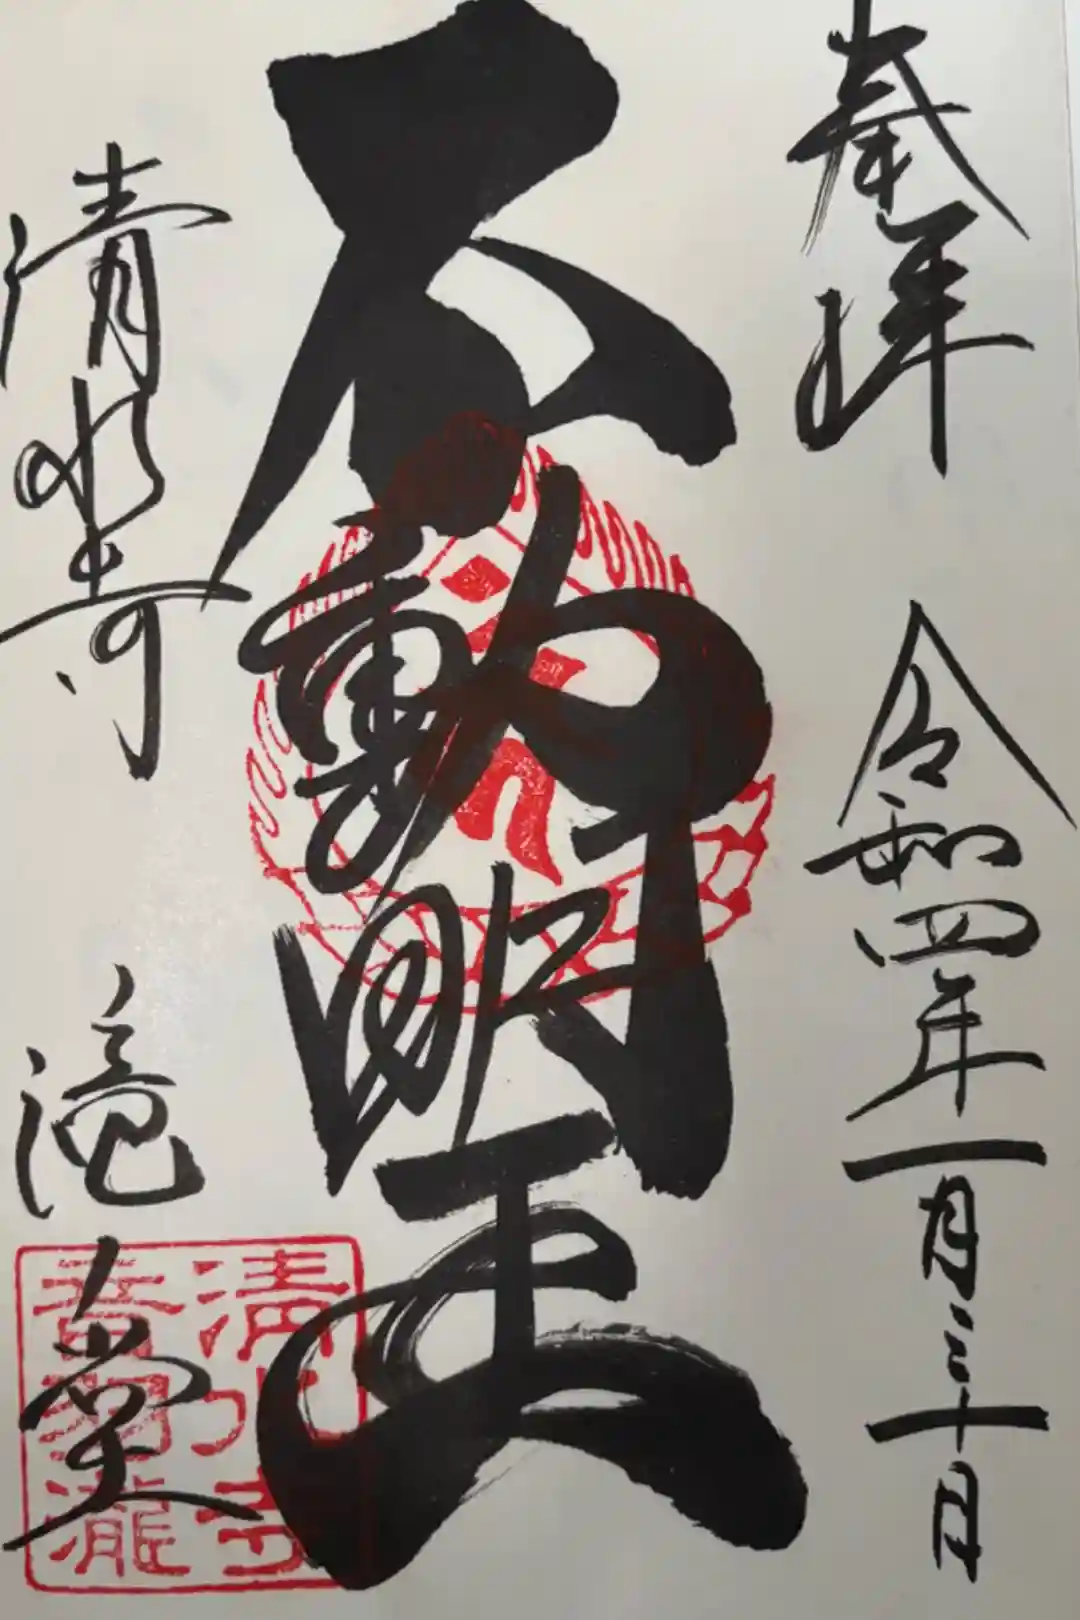 奉拝
令和四年一月三十日
不動明王
清水寺
滝堂
清水寺
音羽瀧